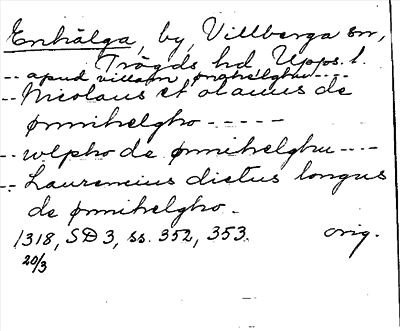 Enhälga, by, Villberga sn,
Trögds hd Upps. l.
-- apud villam ønehelghu ----
-- Nicolaus et olauus de
ønnihelgho -----
-- wlpho de ønnihelghu ---
-- Laurencius dictus longus
de ønnihelgho.
1318, SD 3, ss. 352, 353. orig.
20/3